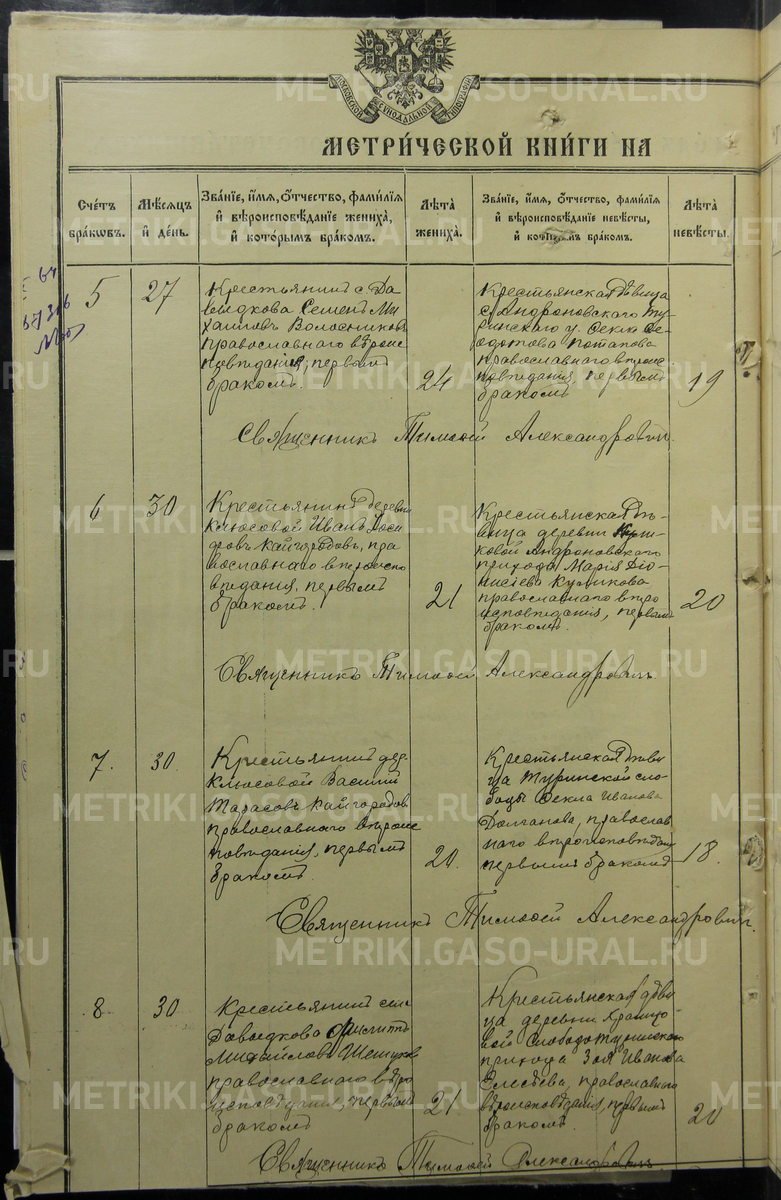 МОСКОВСКОЙ СѴНОДАЛЬНОЙ ТИПОГРАФІИ
МЕТРИ́ЧЕСКОЙ КНИ́ГИ НА
Сче́тъ бра́ковъ.
Мѣ́сяцъ и҆ де́нь.
Зва́нїе, и҆́мя, ѻ҆́тчество, фами́лїя
и҆ вѣроисповѣ́данїе жениха̀,
и҆ кото́рымъ бра́комъ.
Лѣ́та жениха̀.
Зва́нїе, и҆́мя, ѻ҆́тчество, фами́лїя
и҆ вѣроисповѣ́данїе невѣ́сты,
и҆ кото́рымъ бра́комъ.
Лѣ́та невѣ́сты.
5
27
Крестьянинъ с. Да
выдкова Семенъ Ми
хаиловъ Волосниковъ
православнаго вѣроис
повѣданія, первымъ
бракомъ.
24
Крестьянская дѣвица
с. Андроновскаго Ту-
ринскаго у. Ѳекла Ѳе
одотова Потапова
православнаго вѣроис
повѣданія, первымъ
бракомъ
19
Священникъ Тимоѳей Александровичъ.
6
30
Крестьянинъ деревни
Клюсовой Иванъ Іоси
фовъ Кайгородовъ, пра
вославнаго вѣроиспо
вѣданія, первымъ
бракомъ.
21
Крестьянская дѣ-
вица деревни
ковой Андроновскаго
прихода Марія Діо-
нисіева Куликова
православнаго вѣро
исповѣданія, первымъ
бракомъ.
20
Священникъ Тимоѳей Александровичъ
7.
30.
Крестьянинъ дер.
Клюсовой Василій
Тарасовъ Кайгородовъ
православнаго вѣроис
повѣданія, первымъ
бракомъ.
20.
Крестьянская дѣви
ца Туринской сло
боды Ѳекла Иванова
Долганова, православ
наго вѣроисповѣданія
первымъ бракомъ
18.
Священникъ Тимоѳей Александровичъ.
8
30
Крестьянинъ села
Давыдкова Филиппъ
Михайловъ Шешуковъ
православнаго вѣро
исповѣданія, первымъ
бракомъ
21
Крестьянская дѣви
ца деревни Храмцо-
вой Слободотуринскаго
прихода Зоя Иванова
Елесѣева, православнаго
вѣроисповѣданія, первымъ
бракомъ.
20
Священникъ Тимоѳей Александровичъ
METRIKI.GASO-URAL.RU